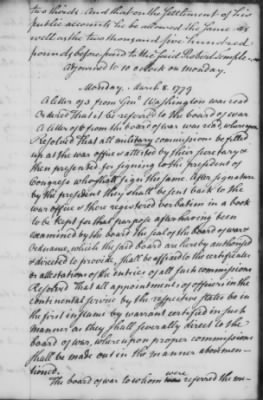 two thirds. And that on the Settlement of his
public accounts he be allowed the same as
well as the two thousand five hundred
pounds, before paid to the said Robert Temple.
Adjourned to 10 o Clock on Monday.
Monday, March 8. 1779
A letter of 3 from Genl Washington was read
Ordered that it be referred to the board of war
A letter of 6 from the board of war was read, whereupon
Resolved That all military commissions be filled
up at the war office & attested by their secretary &
then presented for signing to the president of
Congress who shall sign the same. After signature
by the president they shall be sent back to the
war office & there registered verbatim in a book
to be kept for that purpose after having been
examined by the board. The seal of the board of war &
Ordnance, which the said board are hereby authorised
& directed to provide, shall be affixed to the certificates
or attestations of the entries of all such commissions
Resolved That all appointments of officers in the
continental service by the respective states be in
the first instance by warrant certified in such
manner as they shall severally direct to the
board of war, whereupon proper commissions
shall be made out in the manner abovemen-
tioned.
The board of war to whom were referred the me-